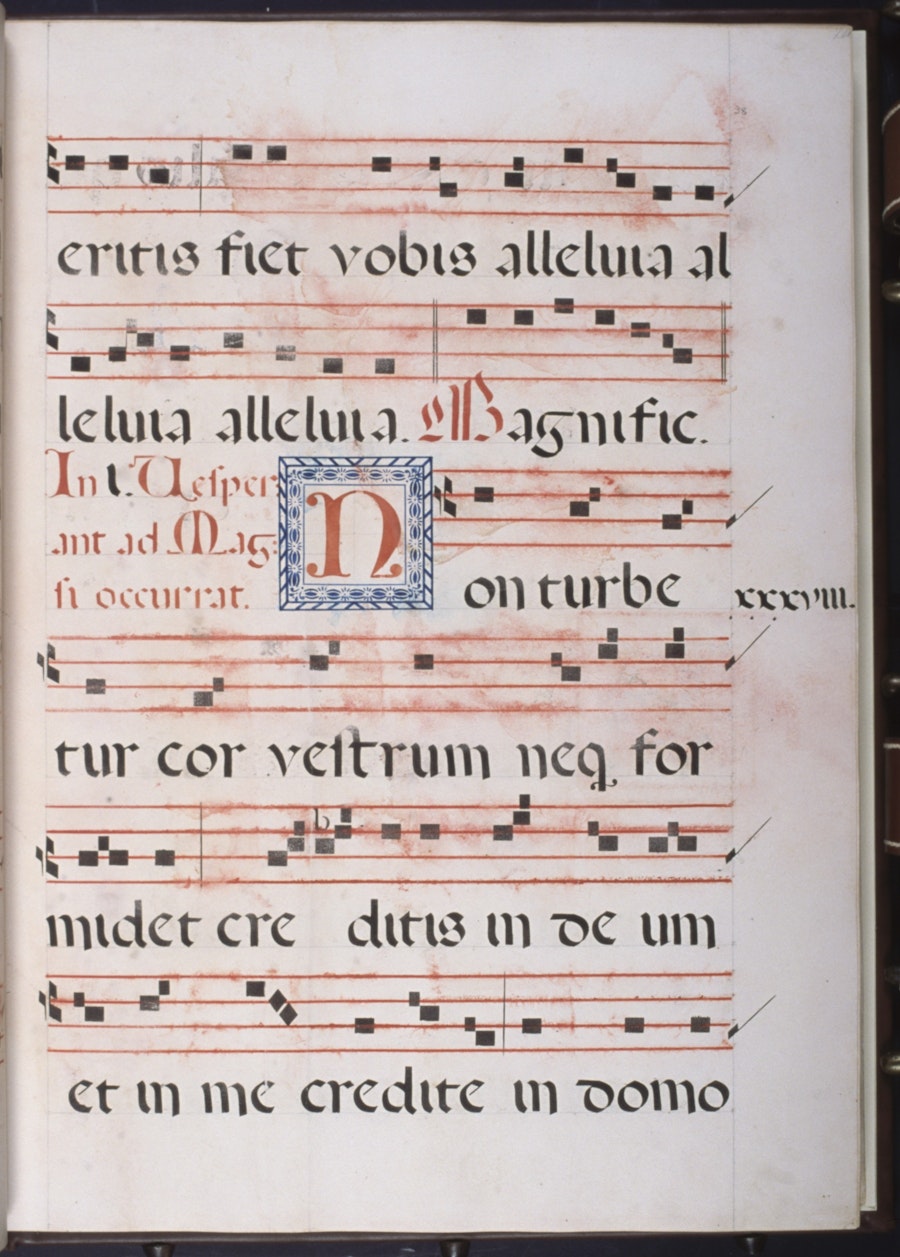 eritis fiet vobis alleluia al
leluia alleluia. Magnific.
In l. Uesper
ant ad Mag:
si occurrat.
N on turbe
xxxviii.
tur cor vestrum neq for
midet cre ditis in de um
b
et in me credite in domo